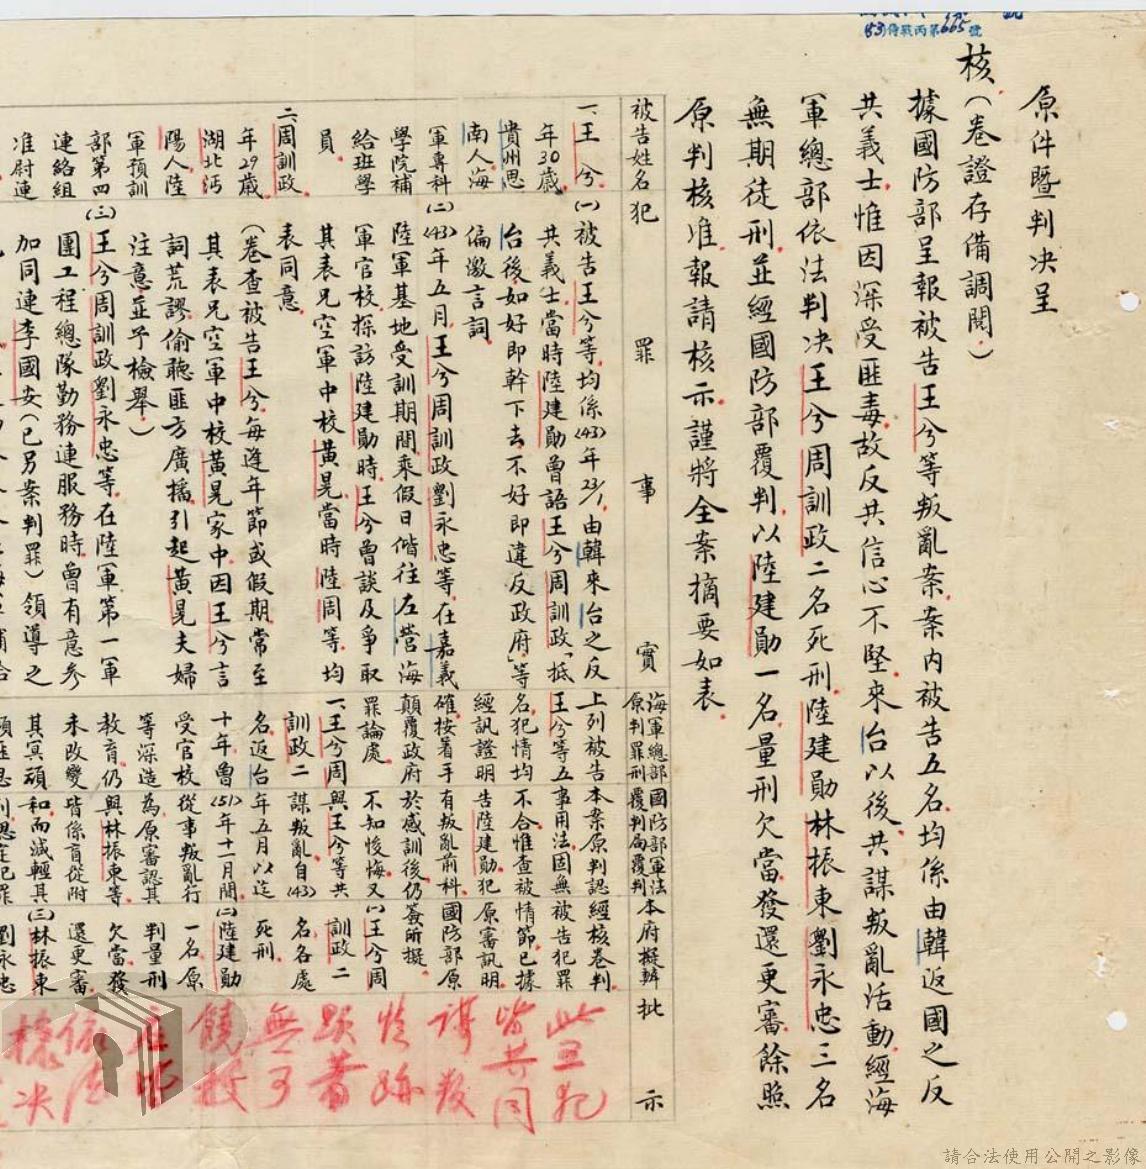 (53)侍戰丙第665號
原件暨判決呈
核(卷證存備調閱。)
據國防部呈報被告王兮等叛亂案案內被告五名均係由韓返國之反
共義士惟因深受匪毒故反共信心不堅來台以後共謀叛亂活動經海
軍總部依法判決王兮周訓政二名死刑陸建勛林振東劉永忠三名
無期徒刑並經國防部覆判以陸建勛一名量刑欠當發還更審餘照
原判核准報請核示謹將全案摘要如表
被告姓名
犯罪事實
海軍總部原判罪刑
國防部軍法覆判局覆判
本府擬辦
批示
一、王兮
年30歲
貴州思
南人海
軍專科
學院補
給班學
員
二周訓政
年29歲
湖北沔
陽人陸
軍預訓
部第四
連絡組
准尉連
(一)被告王兮等均係(43)年23/1由韓來台之反
共義士當時陸建勛曾語王兮周訓政「抵
台後如好即幹下去不好即違反政府」等
偏激言詞
(二)(43)年五月王兮周訓政劉永忠等在嘉義
陸軍基地受訓期間乘假日偕往左營海
軍官校探訪陸建勛時王兮曾談及爭取
其表兄空軍中校黃晃當時陸周等均
表同意
(卷查被告王兮每逢年節或假期常至
其表兄空軍中校黃晃家中因王兮言
詞荒謬偷聽匪方廣播引起黃晃夫婦
注意並予檢舉)
(三)王兮周訓政劉永忠等在陸軍第一軍
團工程總隊勤務連服務時曾有意參
加同連李國安(已另案判罪)領導之
上列被告
王兮等五
名犯情均
經訊證明
確按著手
顛覆政府
罪論處
一、王兮周
訓政二
名返台
十年曾
受官校
等深造
教育仍
未改變
其冥頑
本案原判認
事用法固無
不合惟查被
告陸建勛犯
有叛亂前科
於感訓後仍
不知悛悔又
與王兮等共
謀叛亂自(43)
年五月以迄
(51)年十一月間
從事叛亂行
為原審認其
與林振東等
皆係盲從附
和而減輕其
經核卷判
被告犯罪
情節已據
原審訊明
國防部原
簽所擬
(一)王兮周
訓政二
名各處
死刑
(二)陸建勛
一名原
判量刑
欠當發
還更審
(三)林振東
劉永忠
此五犯
皆共同
謀叛
無可
饒
請合法使用公開之影像